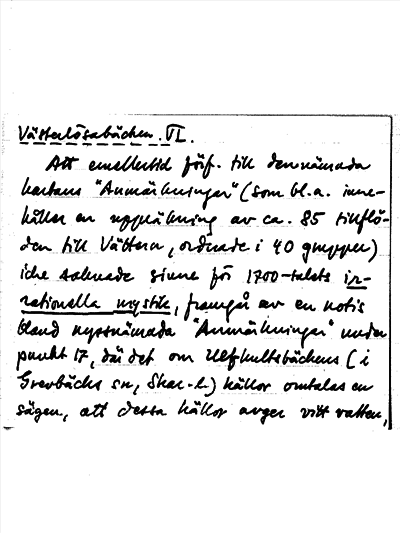 Västerlösabäcken. VI.
Att emellertid förf. till den nämnda
kartans "Anmärkningar" (som bl.a. inne-
håller en uppräkning av ca. 85 tillflö-
den till Vättern, ordnade i 40 grupper)
icke saknade sinne för 1700-talets ir-
rationella mystik, framgår av en notis
bland nyssnämnda "Anmärkningar" under
punkt 17, där det om Ulfhultsbäckens (i
Grevbäcks sn, Skar-l.) källor omtalas en
sägen, att dessa källor avger vitt vatten,